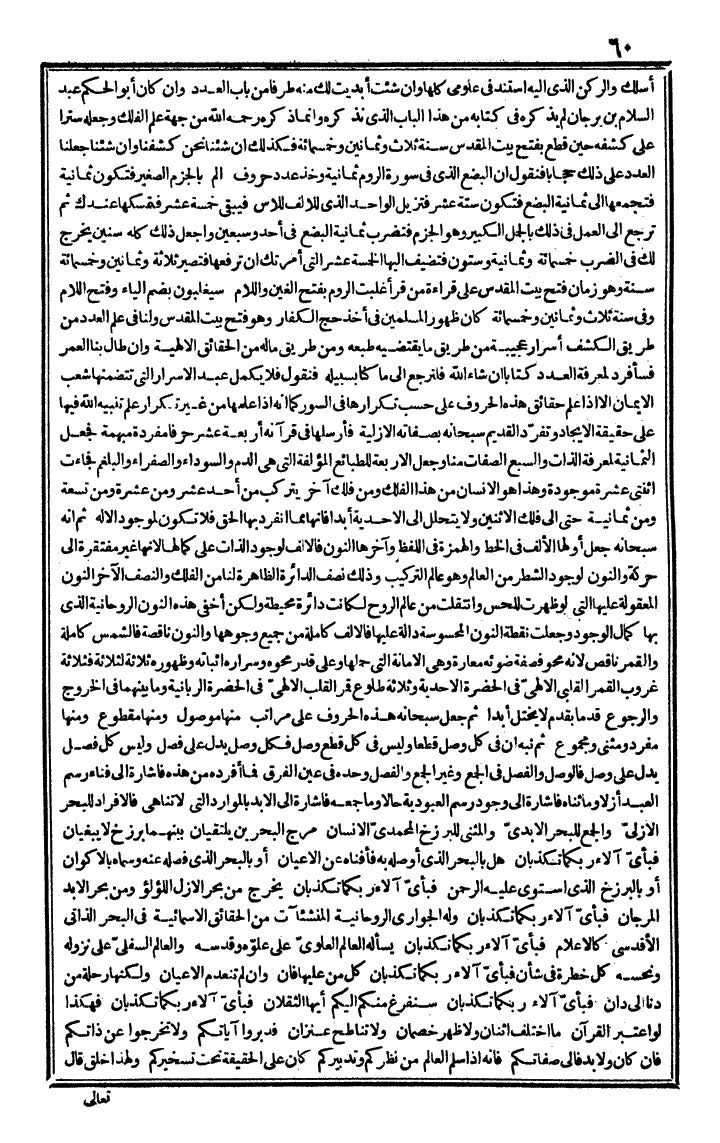 ٦٠
أسلك والركن الذى اليه استند فى علومى كلها وان شئت أبديت لك منه طرفا من باب العدد وان كان أبو الحكم عبد
السلام بن برجان لم يذكره فى كتابه من هذا الباب الذى نذكره وانما ذكره رحمه الله من جهة علم الفلك وجعله سترا
على كشفه حين قطع بفتح بيت المقدس سنة ثلاث وثمانين وخمسمائة فكذلك ان شئنا نحن كشفنا وان شئنا جعلنا
العدد على ذلك حجابا فنقول ان البضع الذى فى سورة الروم ثمانية وخذ عدد حروف الم بالجزم الصغير فتكون ثمانية
فتجمعها الى ثمانية البضع فتكون ستة عشر فتزيل الواحد الذى للالف للاس فيبقى خمسة عشر فتمسكها عندك ثم
ترجع الى العمل فى ذلك بالجمل الكبير وهو الجزم فتضرب ثمانية البضع فى أحد وسبعين واجعل ذلك كله سنين يخرج
لك فى الضرب خمسمائة وثمانية وستون فتضيف اليها الخمسة عشر التى أمرتك ان ترفعها فتصير ثلاثة وثمانين وخمسمائة
سنة وهو زمان فتح بيت المقدس على قراءة من قرأ غلبت الروم بفتح الغين واللام سيغلبون بضم الياء وفتح اللام
وفى سنة ثلاث وثمانين وخمسمائة كان ظهور المسلمين فى أخذ حج الكفار وهو فتح بيت المقدس ولنا فى علم العدد من
طريق الكشف أسرار عجيبة من طريق ما يقتضيه طبعه ومن طريق ماله من الحقائق الالهية وان طال بنا العمر
فسأفرد لمعرفة العدد كتابا ان شاء الله فلترجع الى ما كنا بسبيله فنقول فلا يكمل عبد الاسرار التى تتضمنها شعب
الايمان الا اذا علم حقائق هذه الحروف على حسب تكرارها فى السور كما انه اذا علمها من غير تكرار علم تنبيه الله فيها
على حقيقة الايجاد وتفرد القديم سبحانه بصفاته الازلية فأرسلها فى قرآنه أربعة عشر حرفا مفردة مبهمة فجعل
الثمانية لمعرفة الذات والسبع الصفات منا وجعل الاربعة للطبائع المؤلفة التى هى الدم والسوداء والصفراء والبلغم فجاءت
اثنتى عشرة موجودة وهذا هو الانسان من هذا الفلك ومن فلك آخر يتركب من أحد عشر ومن عشرة ومن تسعة
ومن ثمانية حتى الى فلك الاثنين ولا يتحلل الى الاحدية أبدا فانها مما انفرد بها الحق فلا تكون لموجود الاله ثم انه
سبحانه جعل أولها الألف فى الخط والهمزة فى اللفظ وآخرها النون فالالف لوجود الذات على كمالها لانها غير مفتقرة الى
حركة والنون لوجود الشطر من العالم وهو عالم التركيب وذلك نصف الدائرة الظاهرة لنا من الفلك والنصف الآخر النون
المعقولة عليها التى لو ظهرت للحس وانتقلت من عالم الروح لكانت دائرة محيطة ولكن أخفى هذه النون الروحانية الذى
بها كمال الوجود وجعلت نقطة النون المحسوسة دالة عليها فالالف كاملة من جميع وجوهها والنون ناقصة فالشمس كاملة
والقمر ناقص لانه محو فصفة ضوئه معارة وهى الامانة التى حملها وعلى قدر محوه وسراره اثباته وظهوره ثلاثة لثلاثة فثلاثة
غروب القمر القلبى الالهى فى الحضرة الاحدية وثلاثة طلوع قمر القلب الالهى فى الحضرة الربانية وما بينهما فى الخروج
والرجوع قدما بقدم لا يختل أبدا ثم جعل سبحانه هذه الحروف على مراتب منها موصول ومنها مقطوع ومنها
مفرد ومثنى ومجموع ثم نبه ان فى كل وصل قطعا وليس فى كل قطع وصل فكل وصل يدل على فصل وليس كل فصل
يدل على وصل فالوصل والفصل فى الجمع وغير الجمع والفصل وحده فى عين الفرق فما أفرده من هذه فاشارة الى فناء رسم
العبد أزلا وما ثناه فاشارة الى وجود رسم العبودية حالا وما جمعه فاشارة الى الابد بالموارد التى لا تتناهى فالافراد للبحر
الازلى والجمع للبحر الابدى والمثنى للبرزخ المحمدى الانسان مرج البحرين يلتقيان بينهما برزخ لا يبغيان
فبأى آلاء ربكما تكذبان هل بالبحر الذى أوصله به فأفناه عن الاعيان أو بالبحر الذى فصله عنه وسماه بالاكوان
أو بالبرزخ الذى استوى عليه الرحمن فبأى آلاء ربكما تكذبان يخرج من بحر الازل اللؤلؤ ومن بحر الابد
المرجان فبأى آلاء ربكما تكذبان وله الجوارى الروحانية المنشئات من الحقائق الاسمائية فى البحر الذاتى
الأقدسى كالاعلام فبأى آلاء ربكما تكذبان يسأله العالم العلوى على علوه وقدسه والعالم السفلى على نزوله
ونحسه كل خطرة فى شأن فبأى آلاء ربكما تكذبان كل من عليها فان وان لم تنعدم الاعيان ولكنها رحلة من
دنا الى دان فبأى آلاء ربكما تكذبان سنفرغ منكم اليكم أيها الثقلان فبأى آلاء ربكما تكذبان فهكذا
لو اعتبر القرآن ما اختلف اثنان ولا ظهر خصمان ولا تناطح عنزان فدبروا آياتكم ولا تخرجوا عن ذاتكم
فان كان ولا بد فالى صفاتكم فانه اذا سلم العالم من نظركم وتدبيركم كان على الحقيقة تحت تسخيركم ولهذا خلق قال
تعالى